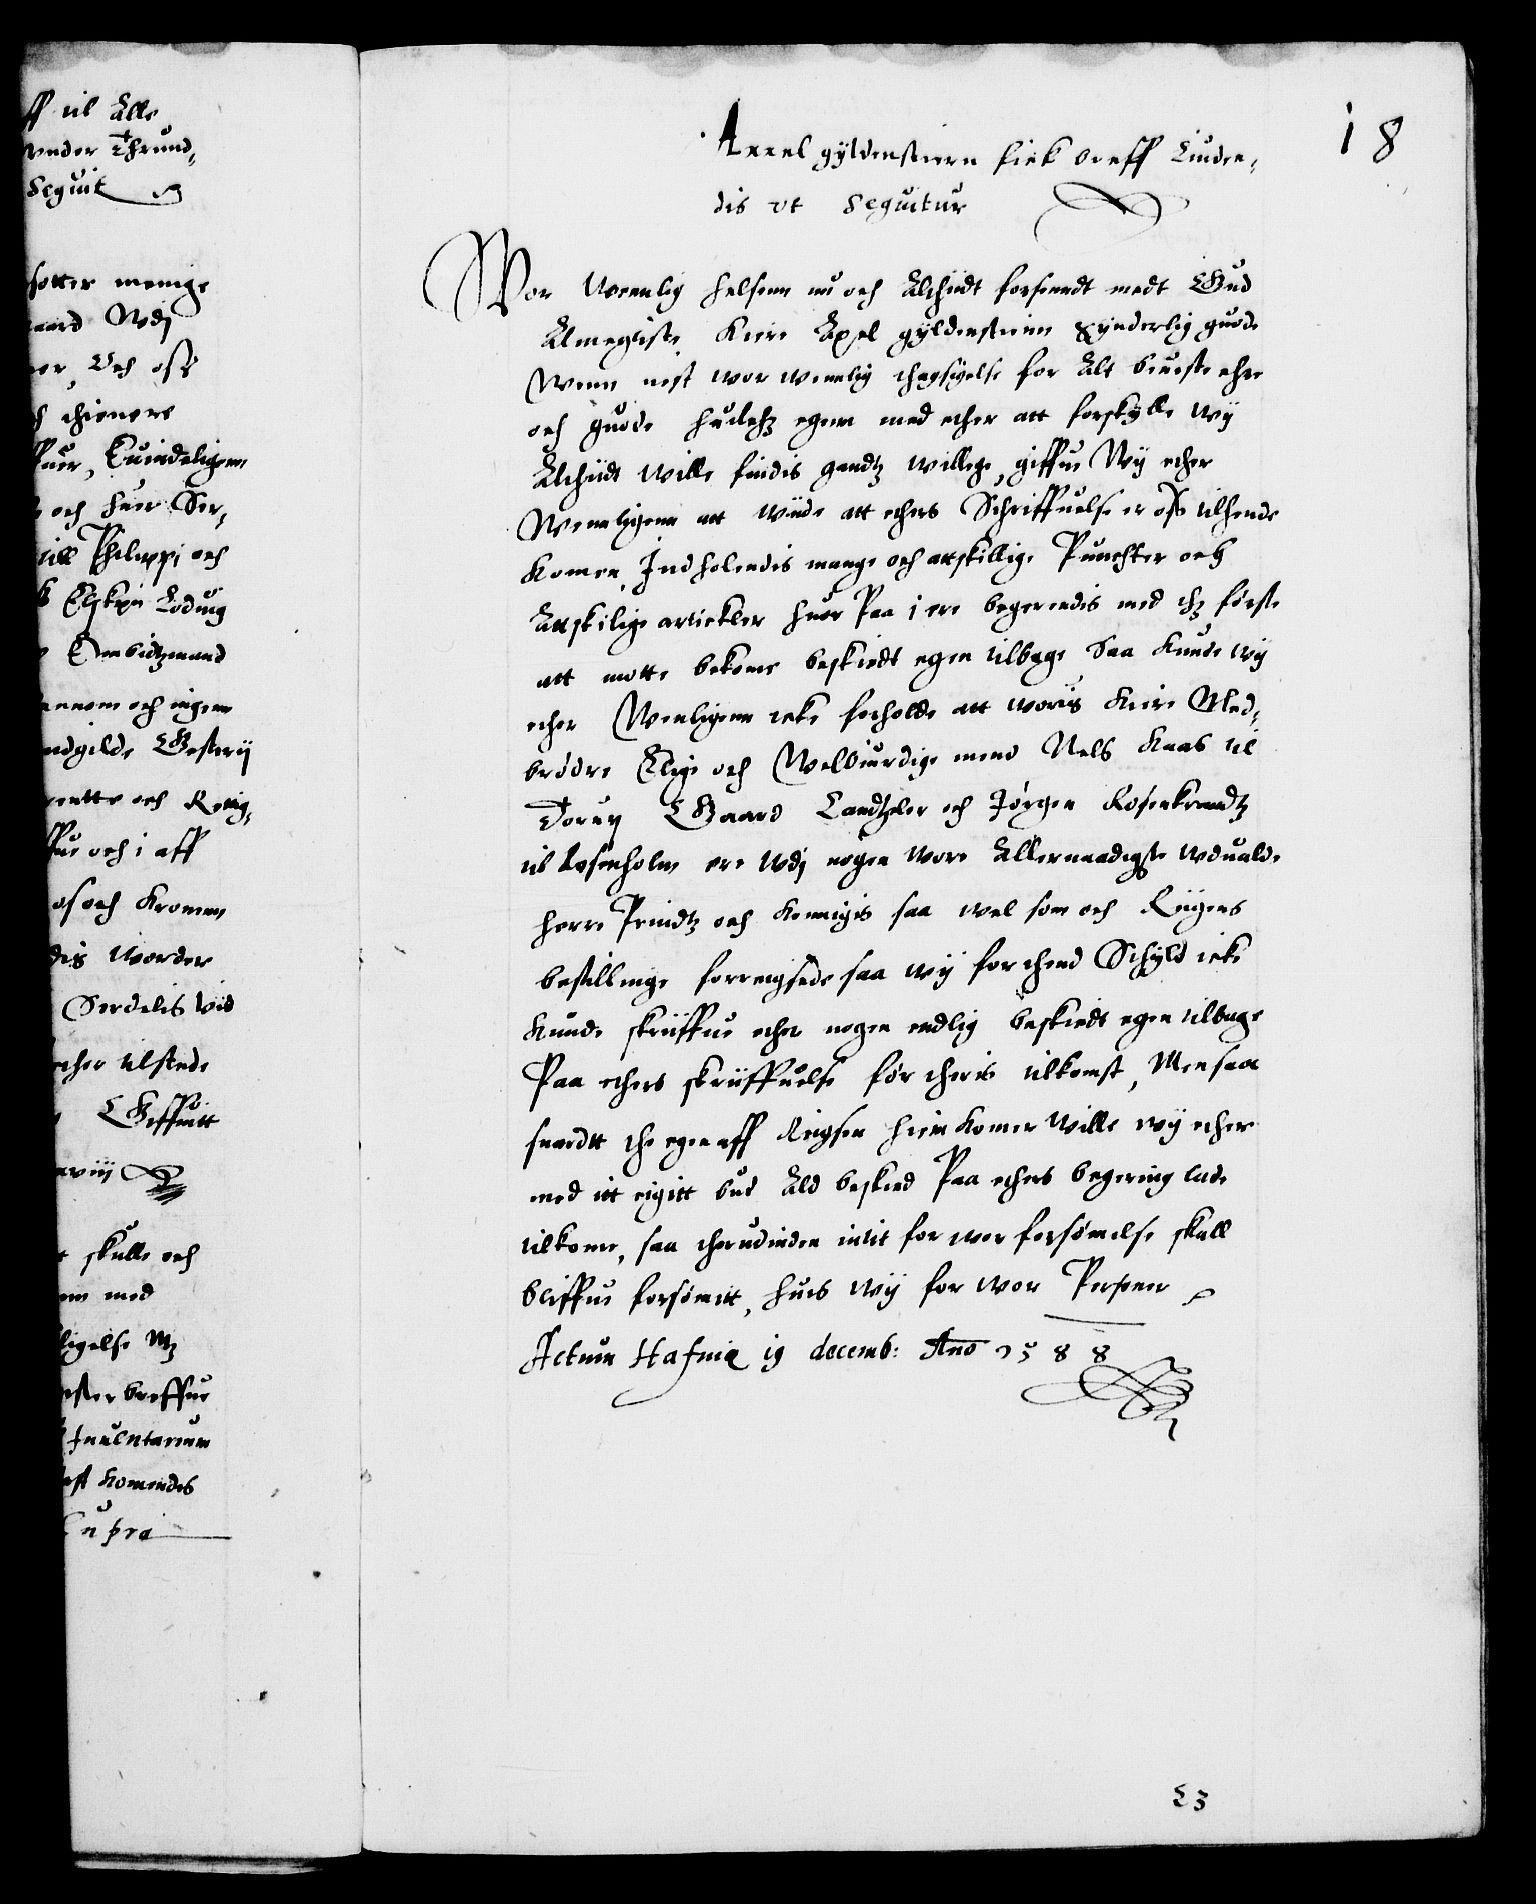 ff til Alle
vnder Thrund,
Seguit
sotter menige
gaard Wdj
ner, Och oss
h thienere
ffuer, Euindeligenn
och huer Ser,
till Philippi och
Elskm Loduig
Embidzmand
annem och ingenn
ndgilde Gesterij
rentte och Reig,
ffue och i aff
os och Kronen
dis worder
Serdelis vid
ether tilstede
Geffuitt
xxviij
skulle och
enn med
ligelse Mz
efter breffue
Inuentarium
est komendes
Supra
Axxel gyldenstiern fick breff Liuden,
dis vt Seguitur
18
Wor Venlig helsenn nu och Altiidt forsendt medt Gud
Almegtiste. Kiere Axel gyldenstiern Synderlig guode
Wenn nest wor wenlig thagsigelse for Alt beuiste ehre
och guode huilchz egenn med ether att forskylle wij
Altiidt wille findis gandtz willige, giffue Wij ether
Wenligenn att wiide att ethers Schriffuelse er oss tilhende
komen, Indholendis mange och attskillige Punchter och
Attskilige artickler huor Paa i ere begerendis med thz første
att motte bekome beskiedt egen tilbage Saa kunde wij
ether Wenligenn icke forholde att woris kiere Med,
brødre Erlige och Welbiurdige mend Nels Kaas til
Torup Gaard Candtzler och Jørgen Rosenkrandtz
til Rosenholm ere Wdj nogen wore Allernaadigste wdualde
herre Prindtz och Konnigis saa wel som och Riigens
bestillinge forreigsede saa wij for thend Schyld icke
kunde skriiffue ether nogen endlig beskiedt egen tilbage
Paa ethers skriiffuelse før theris tilkomst, Men saa
snardtt the egen aff Reigsen hiem komer Wille wij ether
med itt eigitt bud Ald beskied Paa ethers begering lade
tilkome, saa therudinden intit for wor forsømelse skall
bliffue forsømitt, huis wij for wor Personer
Actum Hafniæ 19 decemb: Ano 1588
E3